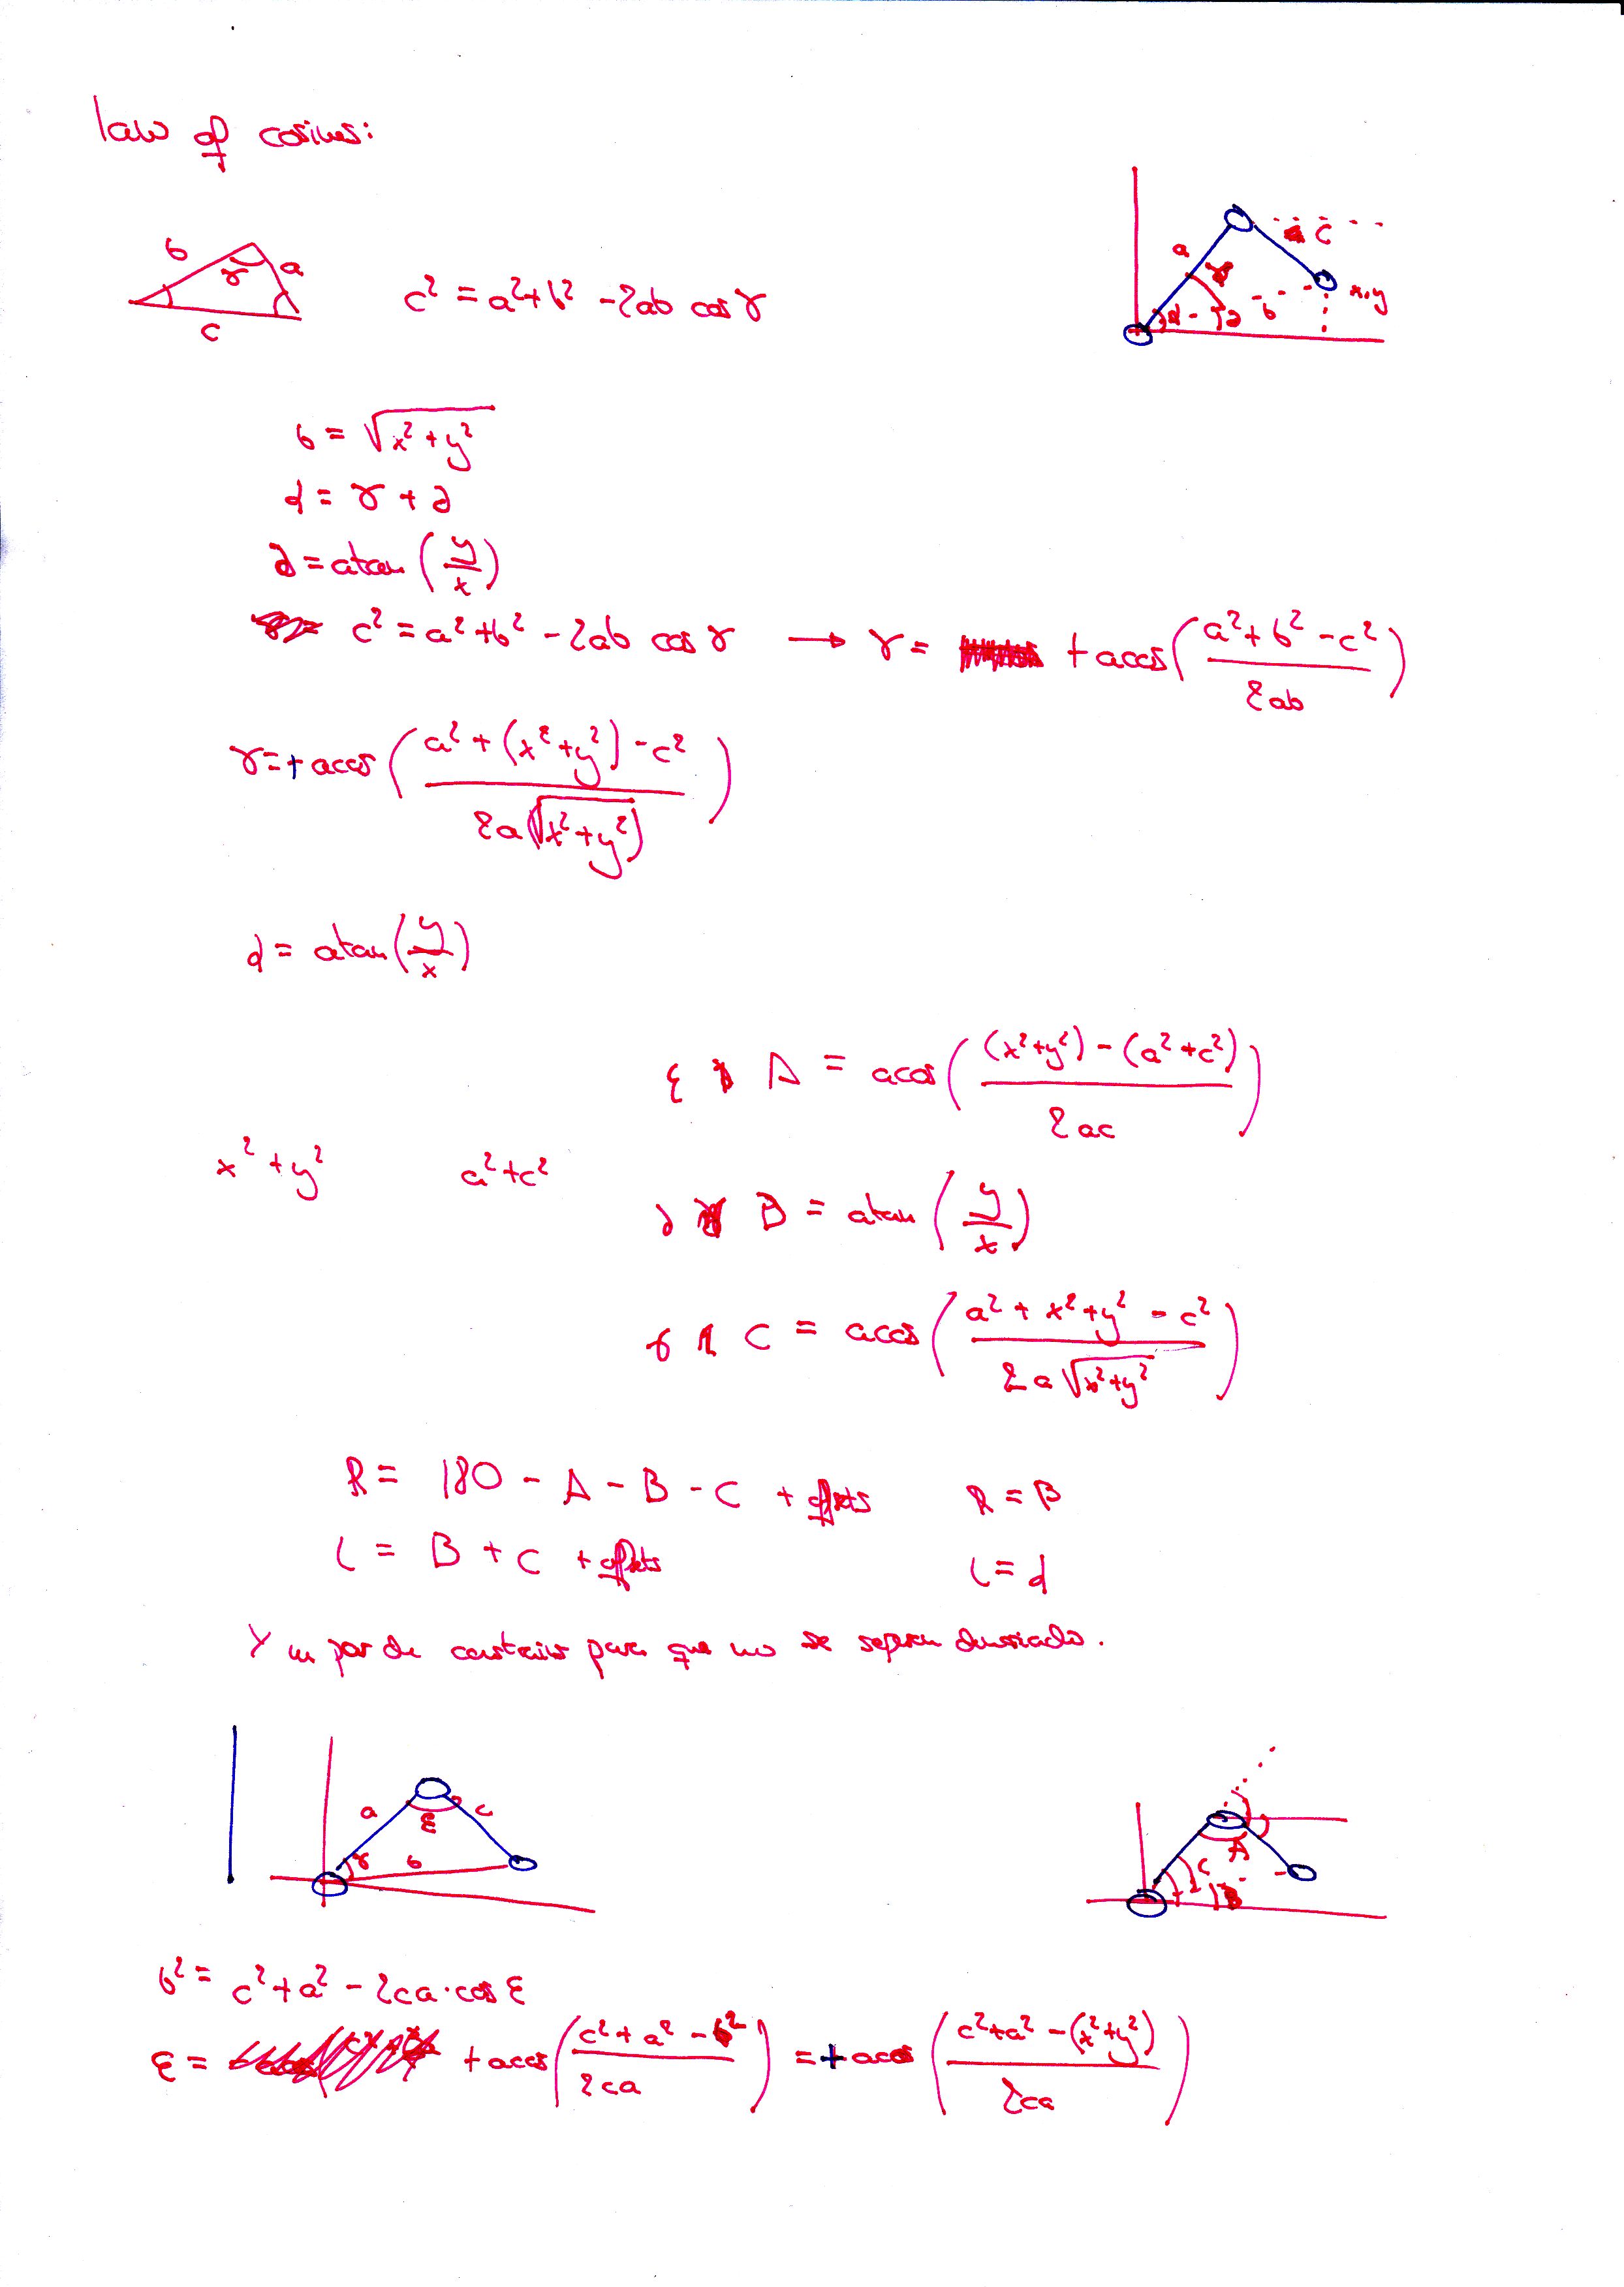 law of cosines:
b
γ
a
c
c² = a² + b² - 2ab cos γ
a
c
γ
x,y
α
∂
b
b = √(x² + y²)
α = γ + ∂
∂ = atan (y/x)
c² = a² + b² - 2ab cos γ → γ = + acos ((a² + b² - c²)/2ab)
γ = + acos ((a² + (x² + y²) - c²)/2a(√x² + y²))
α = atan (y/x)
ε A = acos (((x² + y²) - (a² + c²))/2ac)
x² + y² a² + c²
∂ B = atan (y/x)
γ C = acos ((a² + x² + y² - c²)/2a√(x² + y²))
R = 180 - A - B - C + offsets R = β
L = B + C + offsets L = α
Y un par de para que no se separen demasiado.
a
ε
c
γ
b
A
C
α
B
b² = c² + a² - 2ca·cos ε
ε = + acos ((c² + a² - b²)/2ca) = + acos ((c² + a² - (x² + y²))/2ca)